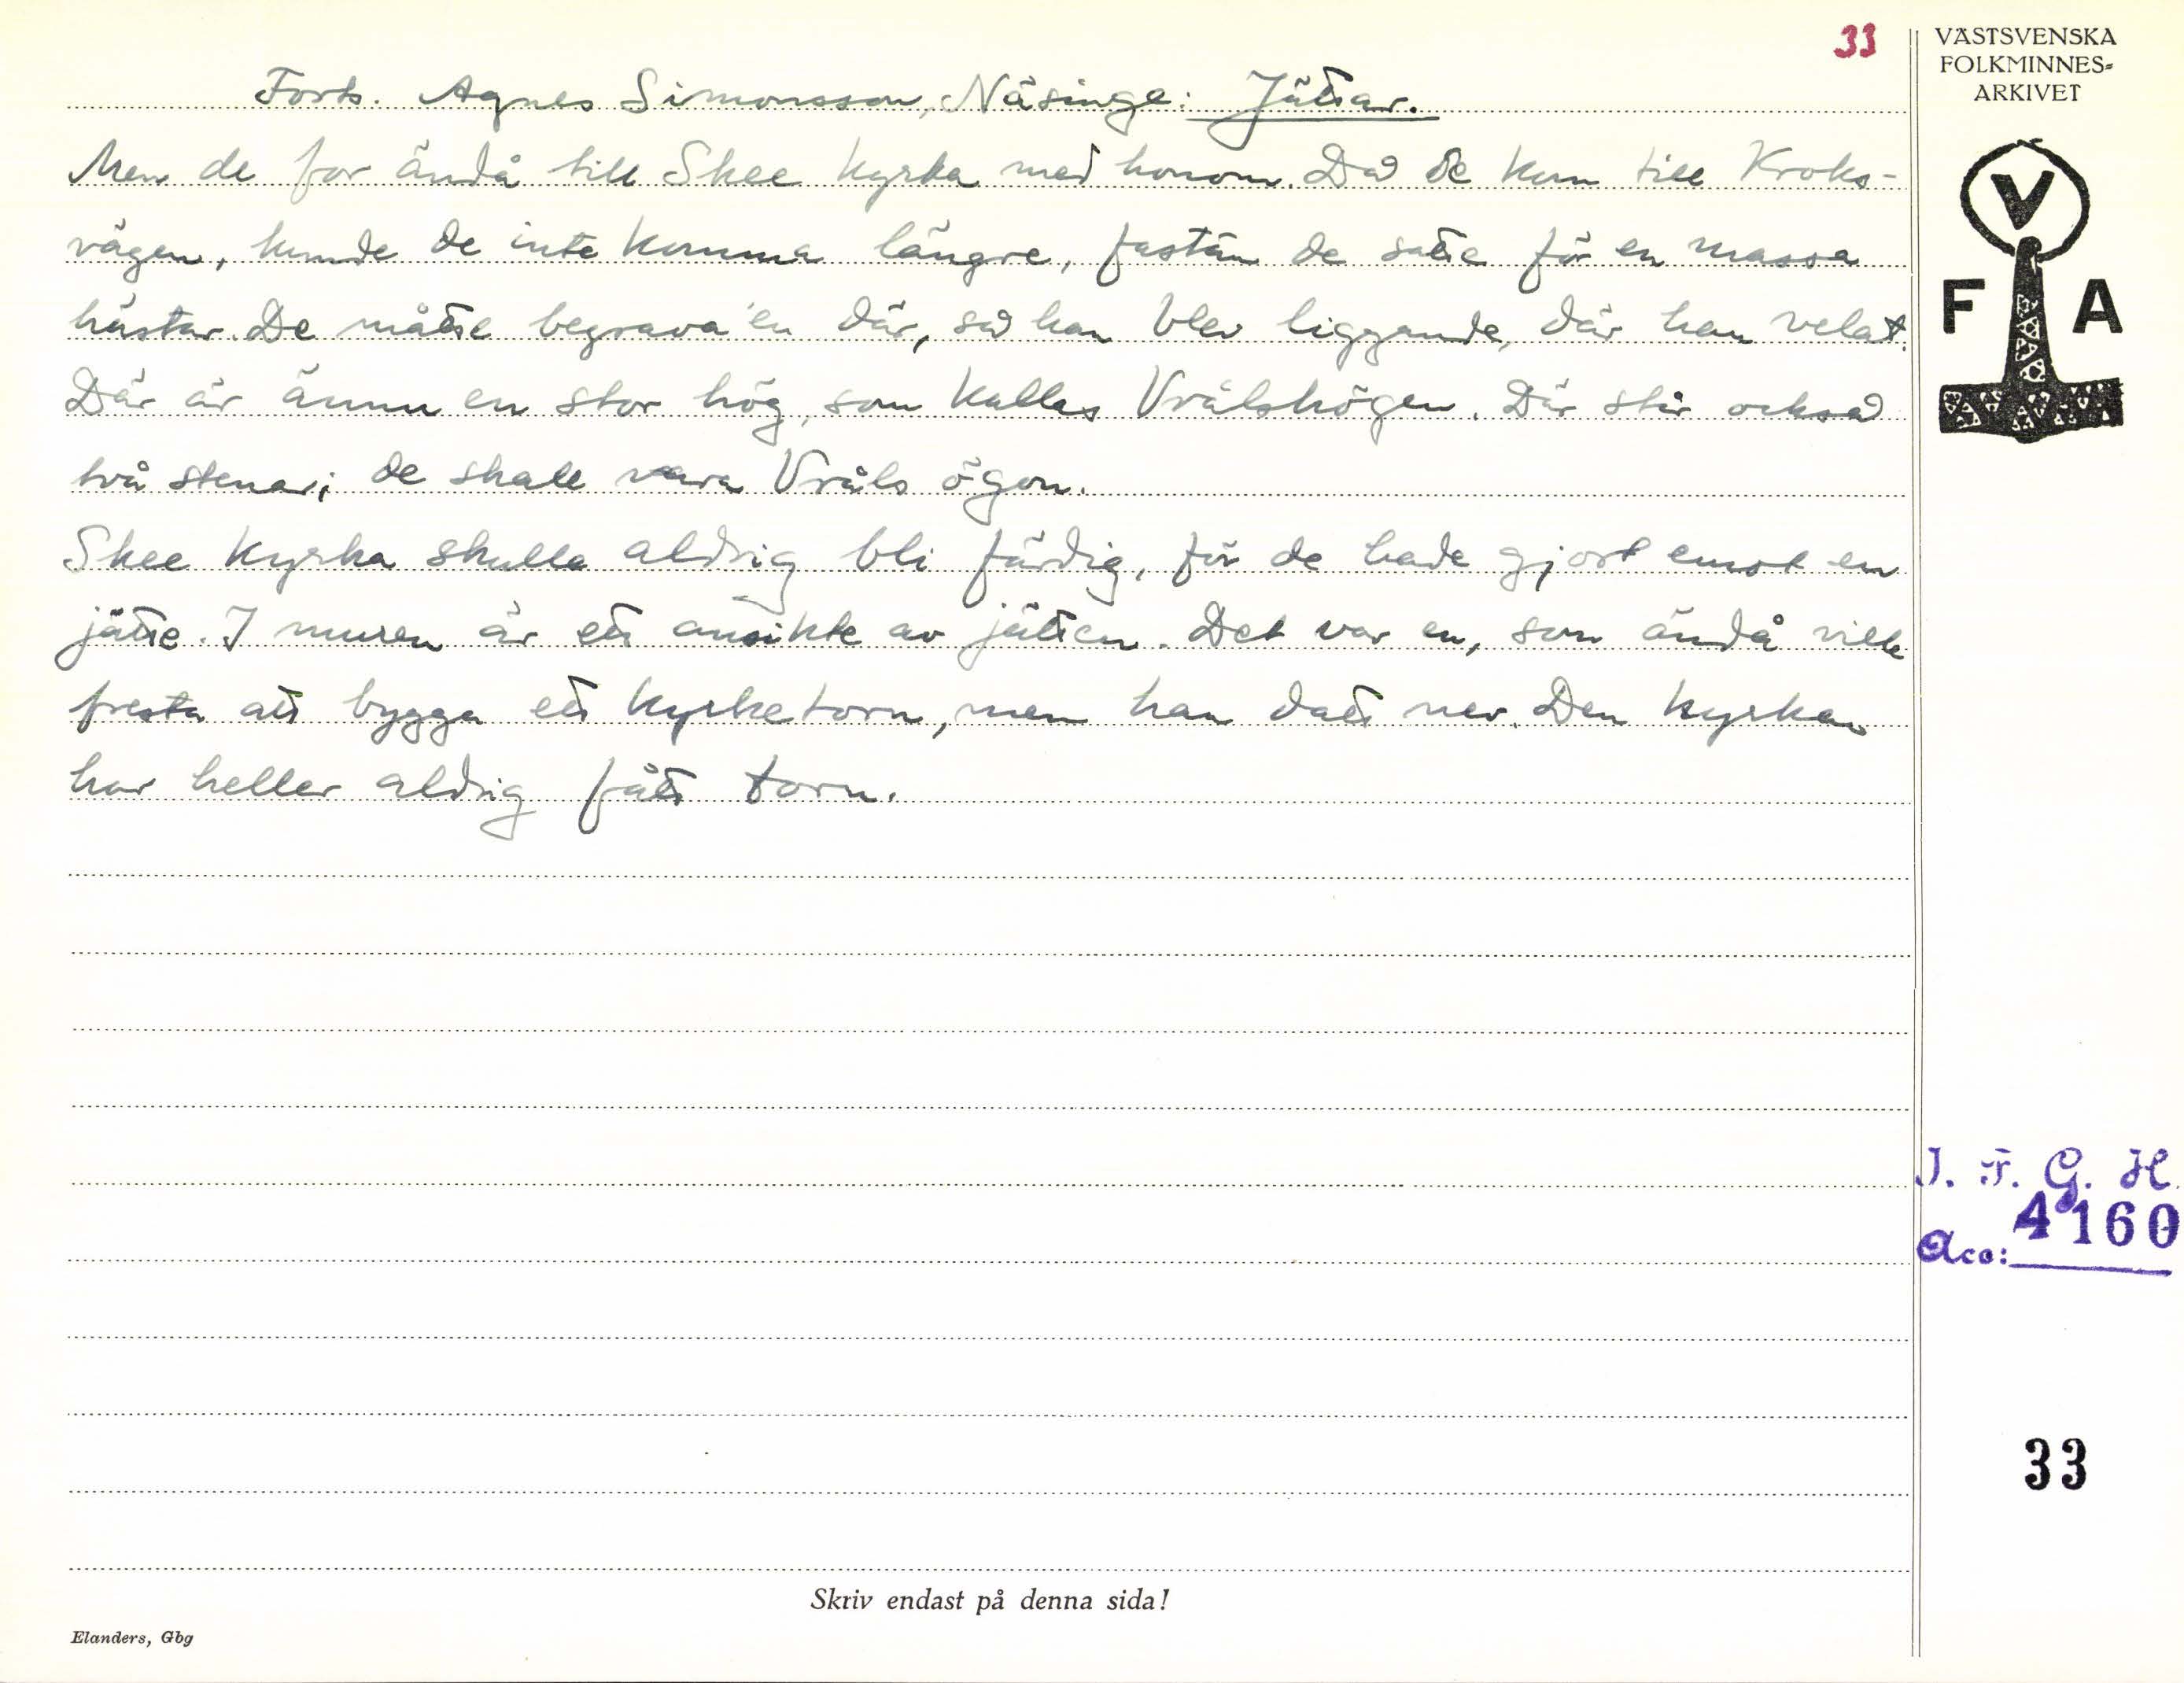 33
VÄSTSVENSKA
FOLKMINNES-
ARKIVET
Forts. Agnes Simonsson, Näsinge: Jättar.
Men de for ändå till Skee kyrka med honom. Då de kom till Kroks-
vägen, kunde de inte komma längre, fastän de satte för en massa
hästar. De måtte begrava 'en där, så han blev liggande, där han velat.
Där är ännu en stor hög, som kallas Vrålshögen. Där står också
två stenar; de skall vara Vråls ögon.
Skee kyrka skulle aldrig bli färdig, för de hade gjort emot en
jätte. I muren är ett ansikte av jätten. Det var en, som ändå ville
fresta att bygga ett kyrketorn, men han datt ner. Den kyrkan
har heller aldrig fått torn.
V
F A
I. F. G. H.
Acc: 4160
33
Skriv endast på denna sida!
Elanders, Gbg